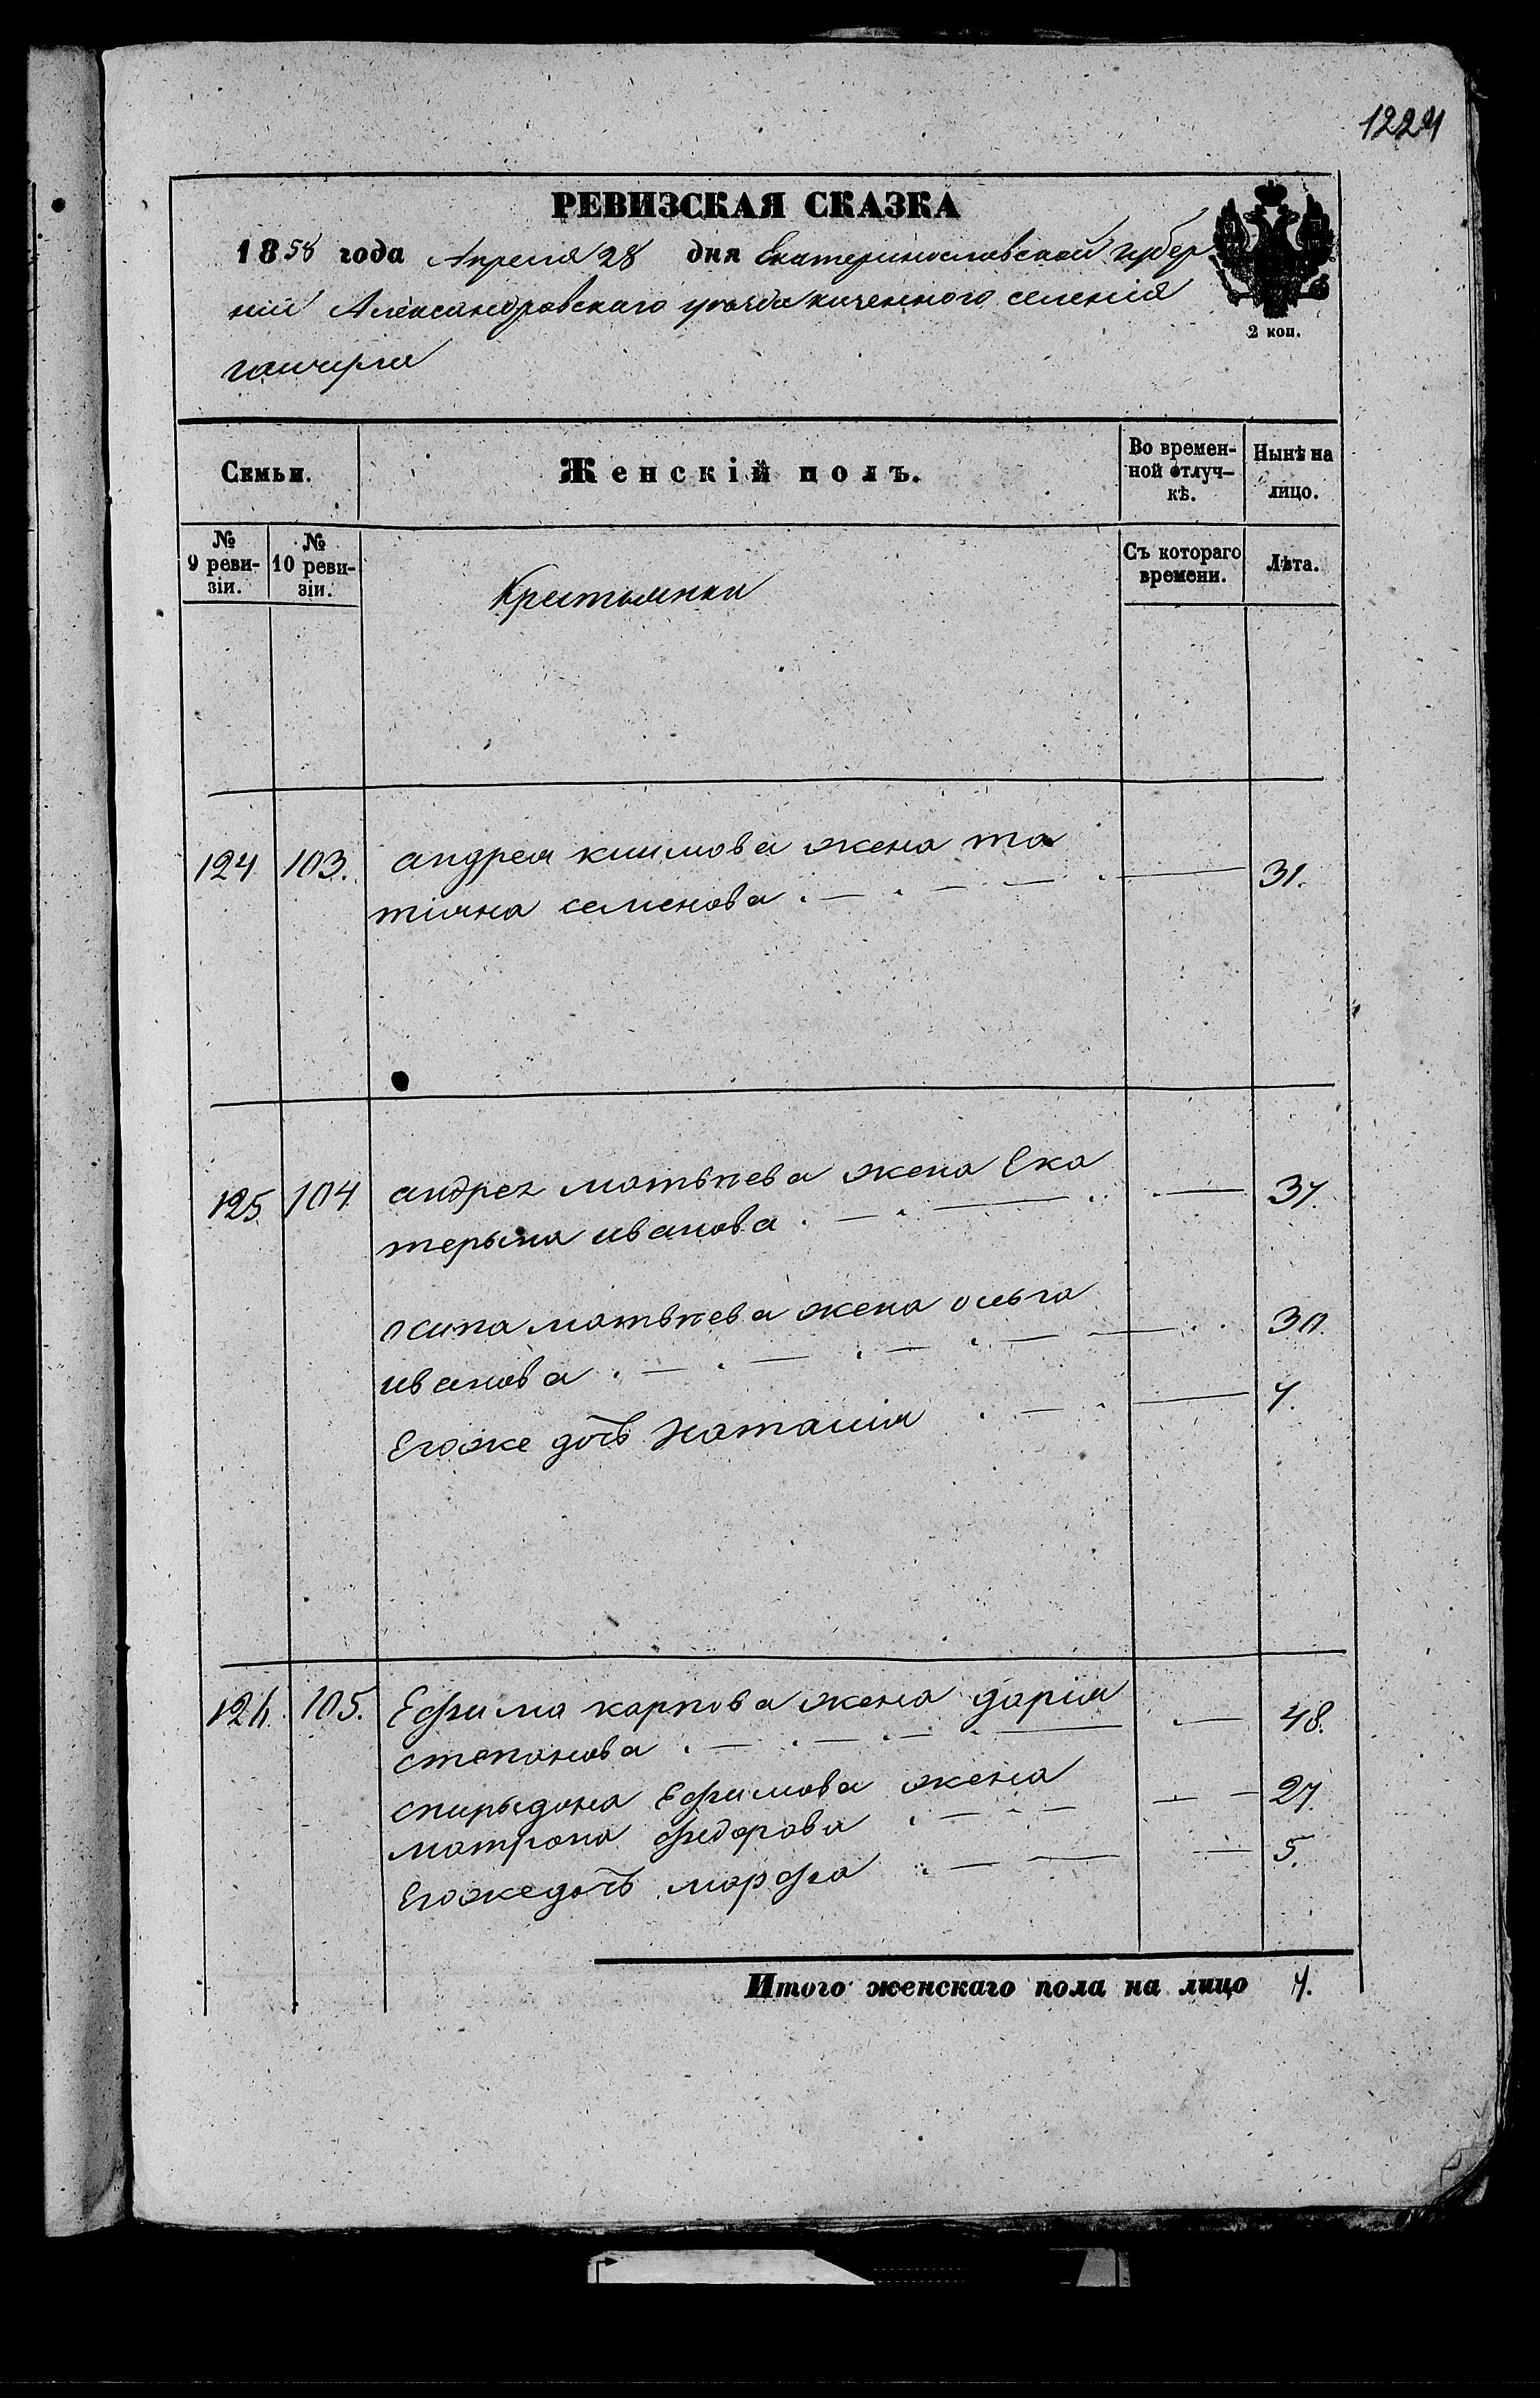 1224
РЕВИЗСКАЯ СКАЗКА
1858 года Апреля 28 дня Екатеринославской губер
нии Александровскаго уѣзда казенного селенія
гайчула
2 коп.
Семьи. Женскій полъ. Во времен-ной отлуч-кѣ. Нынѣ на лицо.
№ 9 реви-зіи. № 10 реви-зіи. Съ котораго времени. Лѣта.
Крестьянки
124 103. андрея климова жена та
тіяна семенова 31.
125 104 андрея матвѣева жена Ека
терына иванова 37.
осипа матвѣева жена ольга
иванова 30.
Егоже дочь Наталия 7.
126. 105. Ефима карпова жена дарія
степанова 48.
спирыдона Ефимова жена
матрона федорова 27.
Егоже дочь марфа 5.
Итого женскаго пола на лицо 7.